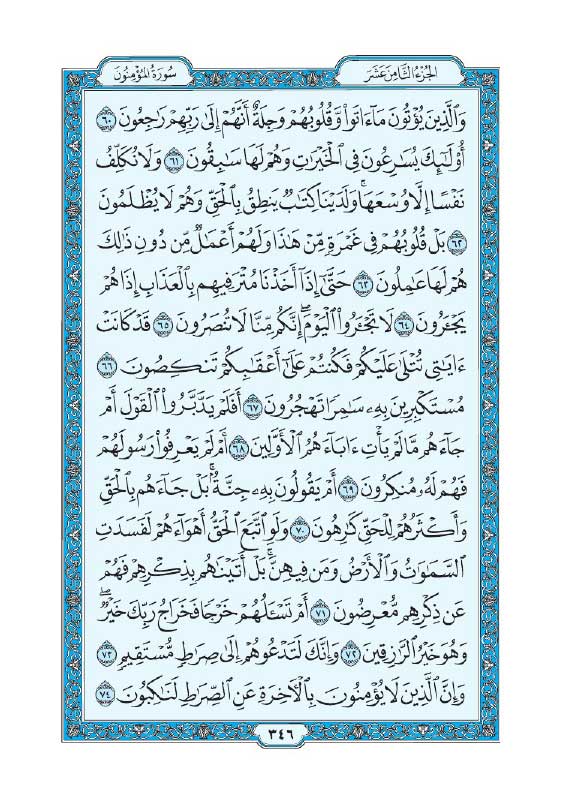 الجزء الثامن عشر
سورة المؤمنون
وَٱلَّذِينَ يُؤْتُونَ مَآءَاتَوا۟ وَّقُلُوبُهُمْ وَجِلَةٌ أَنَّهُمْ إِلَىٰ رَبِّهِمْ رَٰجِعُونَ ٦٠
أُو۟لَٰٓئِكَ يُسَٰرِعُونَ فِى ٱلْخَيْرَٰتِ وَهُمْ لَهَا سَٰبِقُونَ ٦١ وَلَا نُكَلِّفُ
نَفْسًا إِلَّا وُسْعَهَا ۖ وَلَدَيْنَا كِتَٰبٌ يَنطِقُ بِٱلْحَقِّ وَهُمْ لَا يُظْلَمُونَ
٦٢ بَلْ قُلُوبُهُمْ فِى غَمْرَةٍ مِّنْ هَٰذَا وَلَهُمْ أَعْمَٰلٌ مِّن دُونِ ذَٰلِكَ
هُمْ لَهَا عَٰمِلُونَ ٦٣ حَتَّىٰٓ إِذَآ أَخَذْنَا مُتْرَفِيهِم بِٱلْعَذَابِ إِذَا هُمْ
يَجْـَٔرُونَ ٦٤ لَا تَجْـَٔرُوا۟ ٱلْيَوْمَ ۖ إِنَّكُم مِّنَّا لَا تُنصَرُونَ ٦٥ قَدْ كَانَتْ
ءَايَٰتِى تُتْلَىٰ عَلَيْكُمْ فَكُنتُمْ عَلَىٰٓ أَعْقَٰبِكُمْ تَنكِصُونَ ٦٦
مُسْتَكْبِرِينَ بِهِۦ سَٰمِرًا تَهْجُرُونَ ٦٧ أَفَلَمْ يَدَّبَّرُوا۟ ٱلْقَوْلَ أَمْ
جَآءَهُم مَّا لَمْ يَأْتِ ءَابَآءَهُمُ ٱلْأَوَّلِينَ ٦٨ أَمْ لَمْ يَعْرِفُوا۟ رَسُولَهُمْ
فَهُمْ لَهُۥ مُنكِرُونَ ٦٩ أَمْ يَقُولُونَ بِهِۦ جِنَّةٌۢ ۚ بَلْ جَآءَهُم بِٱلْحَقِّ
وَأَكْثَرُهُمْ لِلْحَقِّ كَٰرِهُونَ ٧٠ وَلَوِ ٱتَّبَعَ ٱلْحَقُّ أَهْوَآءَهُمْ لَفَسَدَتِ
ٱلسَّمَٰوَٰتُ وَٱلْأَرْضُ وَمَن فِيهِنَّ ۚ بَلْ أَتَيْنَٰهُم بِذِكْرِهِمْ فَهُمْ
عَن ذِكْرِهِم مُّعْرِضُونَ ٧١ أَمْ تَسْـَٔلُهُمْ خَرْجًا فَخَرَاجُ رَبِّكَ خَيْرٌ ۖ
وَهُوَ خَيْرُ ٱلرَّٰزِقِينَ ٧٢ وَإِنَّكَ لَتَدْعُوهُمْ إِلَىٰ صِرَٰطٍ مُّسْتَقِيمٍ ٧٣
وَإِنَّ ٱلَّذِينَ لَا يُؤْمِنُونَ بِٱلْءَاخِرَةِ عَنِ ٱلصِّرَٰطِ لَنَٰكِبُونَ ٧٤
٣٤٦